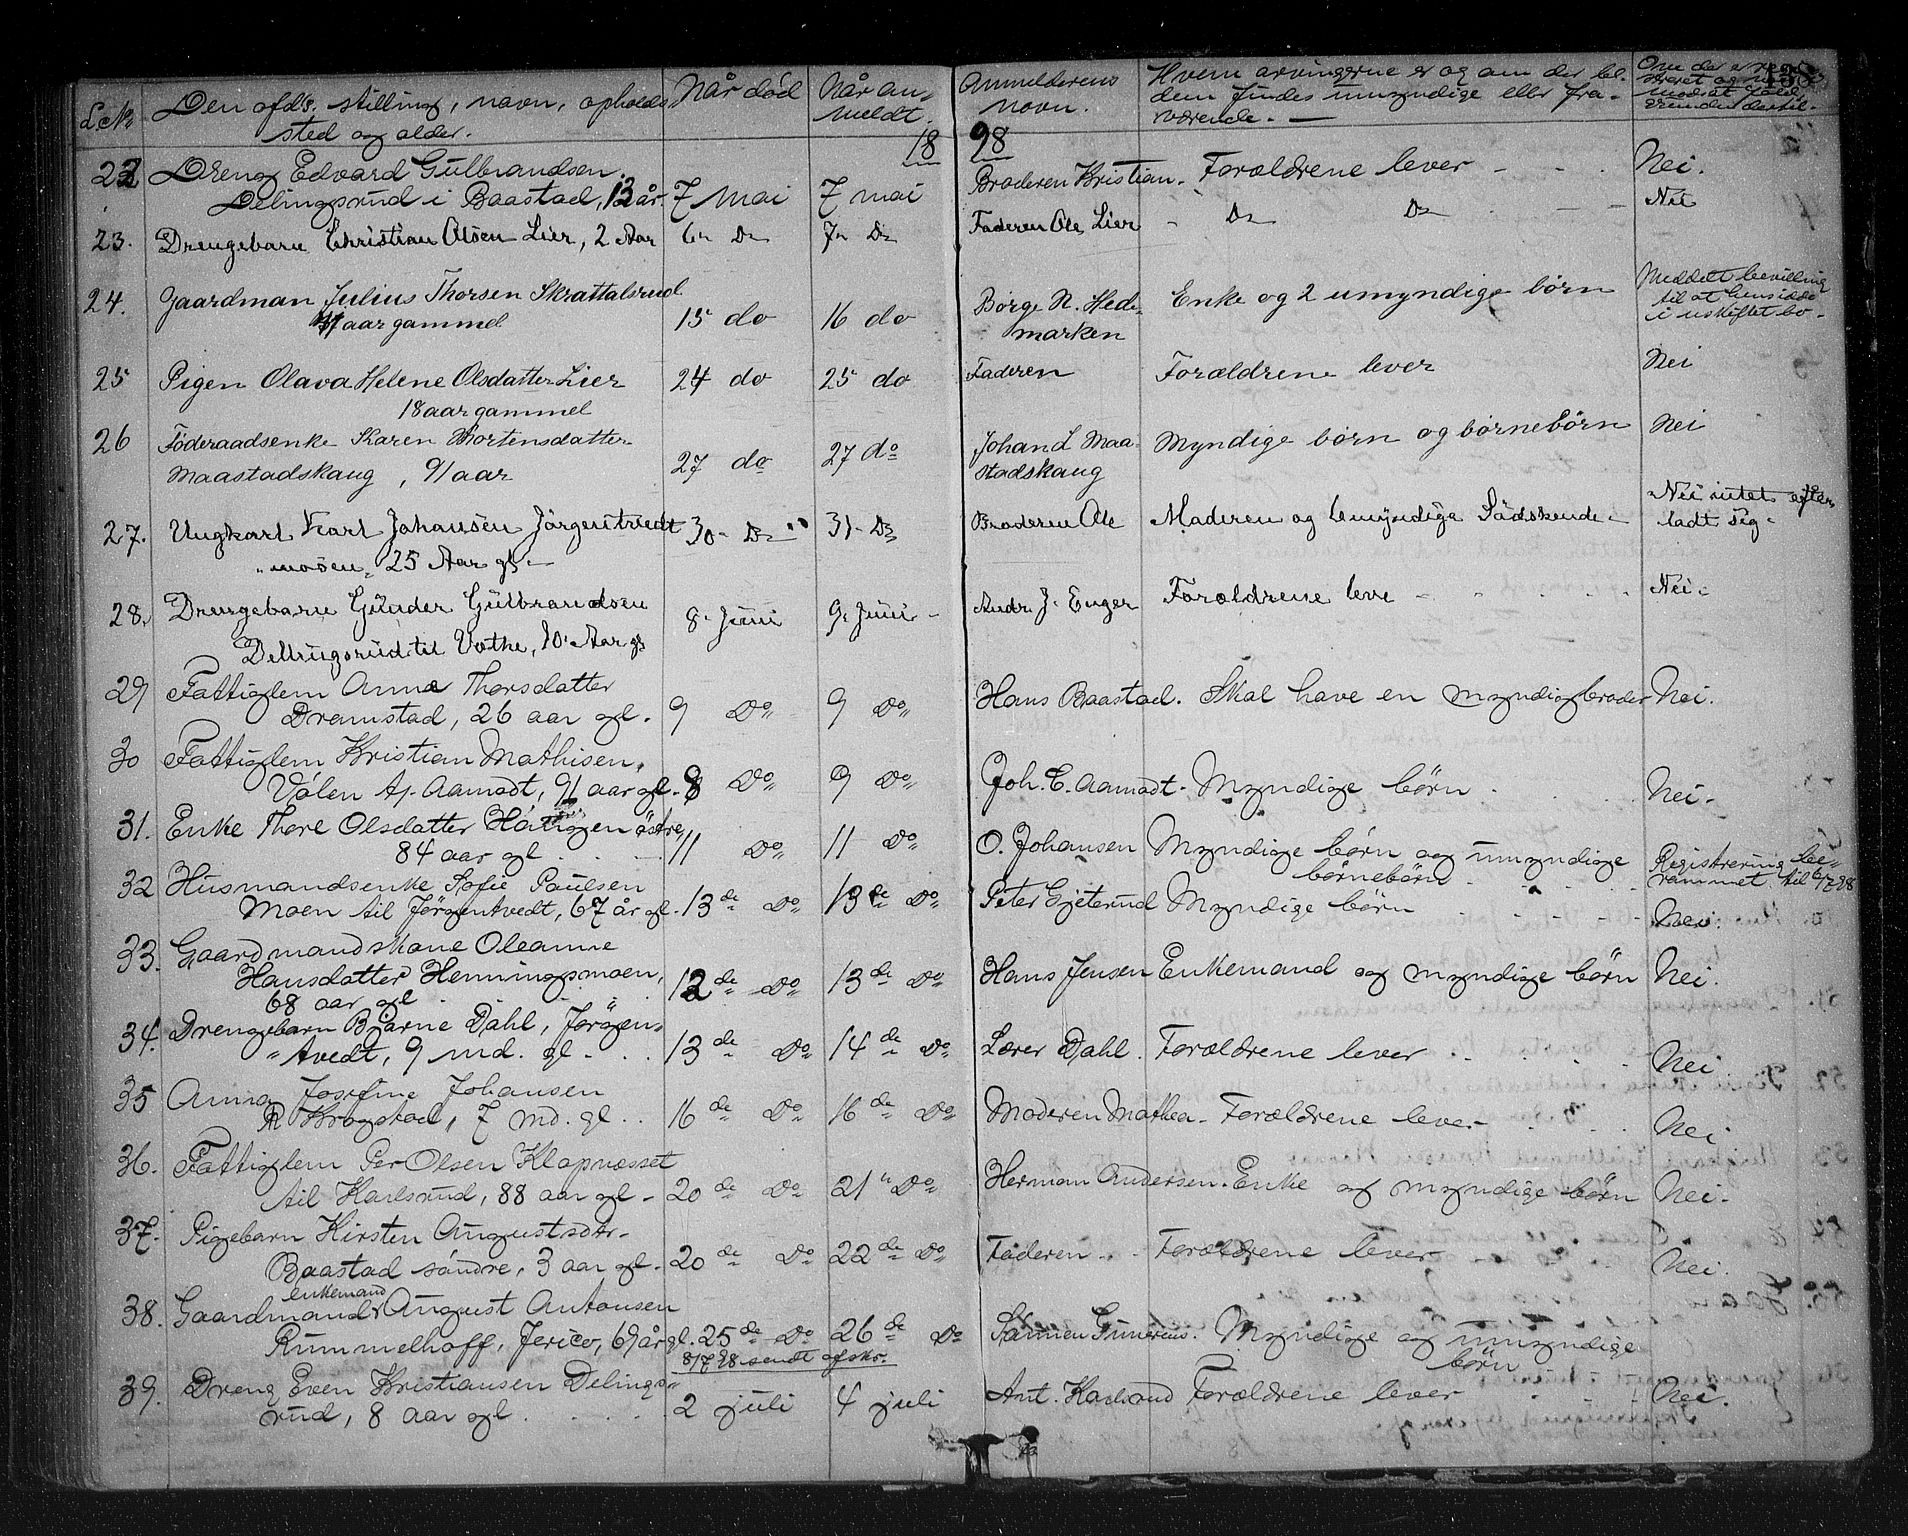 Den afds. stilling, navn, opholds- Når død Når an- Anmelderens Hvem arvingerne er og om der bl.
sted og alder. meldt. navn. dem findes umyndige eller fra-
værende. —
18 98
22 Dreng Edvard Gulbrandsen.
Delingsrud i Baastad, 13 år. 7 mai 7 mai Broderen Kristian. Forældrene lever Nei.
23. Drengebarn Christian Olsen Lier, 2 Aar 6 Do 7 Do Faderen Ole Lier Do Do Nei
24. Gaardman Julius Thorsen Skrattalsrud Enke og 2 umyndige børn Meddelt bevilling
aar gammel 15 do 16 do Børge N. Hede- til at hensidde
marken i uskiftet bo.
25 Pigen Olava Helene Olsdatter Lier 24 do 25 do Faderen Forældrene lever Nei
18 aar gammel
26 Føderaadsenke Karen Mortensdatter Johan L Maa- Myndige børn og børnebørn Nei
Maastadskaug, 91 aar 27 do 27 do stadskaug
27. Ungkarl Karl Johansen Jørgentvedt 30 Do 31 Do Broderen Ole Moderen og umyndige Södskende Nei intet efter
mosen, 25 Aar gl. ladt sig.
28. Drengebarn Gunder Gulbrandsen 8 Juni 9 Juni Andr. J. Enger Forældrene leve Nei
Dellingsrud til Vøthe, 10 Aar gl
29 Fattiglem Anne Thorsdatter
Dramstad, 26 aar gl. 9 Do 9 Do Hans Baastad. Skal have en myndig broder Nei.
30 Fattiglem Kristian Mathisen,
Vølen u. Aamodt, 91 aar gl. 8 Do 9 Do Joh. E. Aamodt. Myndige børn Nei.
31. Enke Thore Olsdatter østre,
84 aar gl. 11 Do 11 Do O. Johansen Myndige børn og umyndige Registrering be-
børnebørn rammet til 6/7 98
32 Husmandsenke Sofie Paulsen
Moen til Jørgentvedt, 67 år gl. 13de Do 13de Do Peter Gjeterud Myndige børn Nei.
33. Gaardmandskone Oleanne
Hansdatter Henningsmoen, 12de Do 13de Do Hans Jensen Enkemand og myndige børn Nei.
68 aar gl
34. Drengebarn Bjarne Dahl, Jørgen-
tvedt, 9 md. gl. 13de Do 14de Do Lærer Dahl. Forældrene lever Nei.
35 Anna Josefine Johansen
Krogstad, 7 md. gl. 16de Do 16de Do Moderen Mathea. Forældrene lever Nei
36. Fattiglem Per Olsen Klapnæsset
til Karlsrud, 88 aar gl. 20de Do 21 Do Herman Andersen. Enke og myndige børn Nei.
37. Pigebarn Kirsten Augustsdtr.
Baastad søndre, 3 aar gl. 20de Do 22de Do Faderen Forældrene lever Nei.
enkemand
38. Gaardmand August Antonsen
Rummelhoff, Jerico, 69 år gl. 25de Do 26de Do Sønnen Gunerius. Myndige og umyndige
børn
8/7 98 sendt afskr.
39. Dreng Even Kristiansen Delings-
rud, 8 aar gl. 2 juli 4 juli Ant. Karlsrud Forældrene lever Nei.